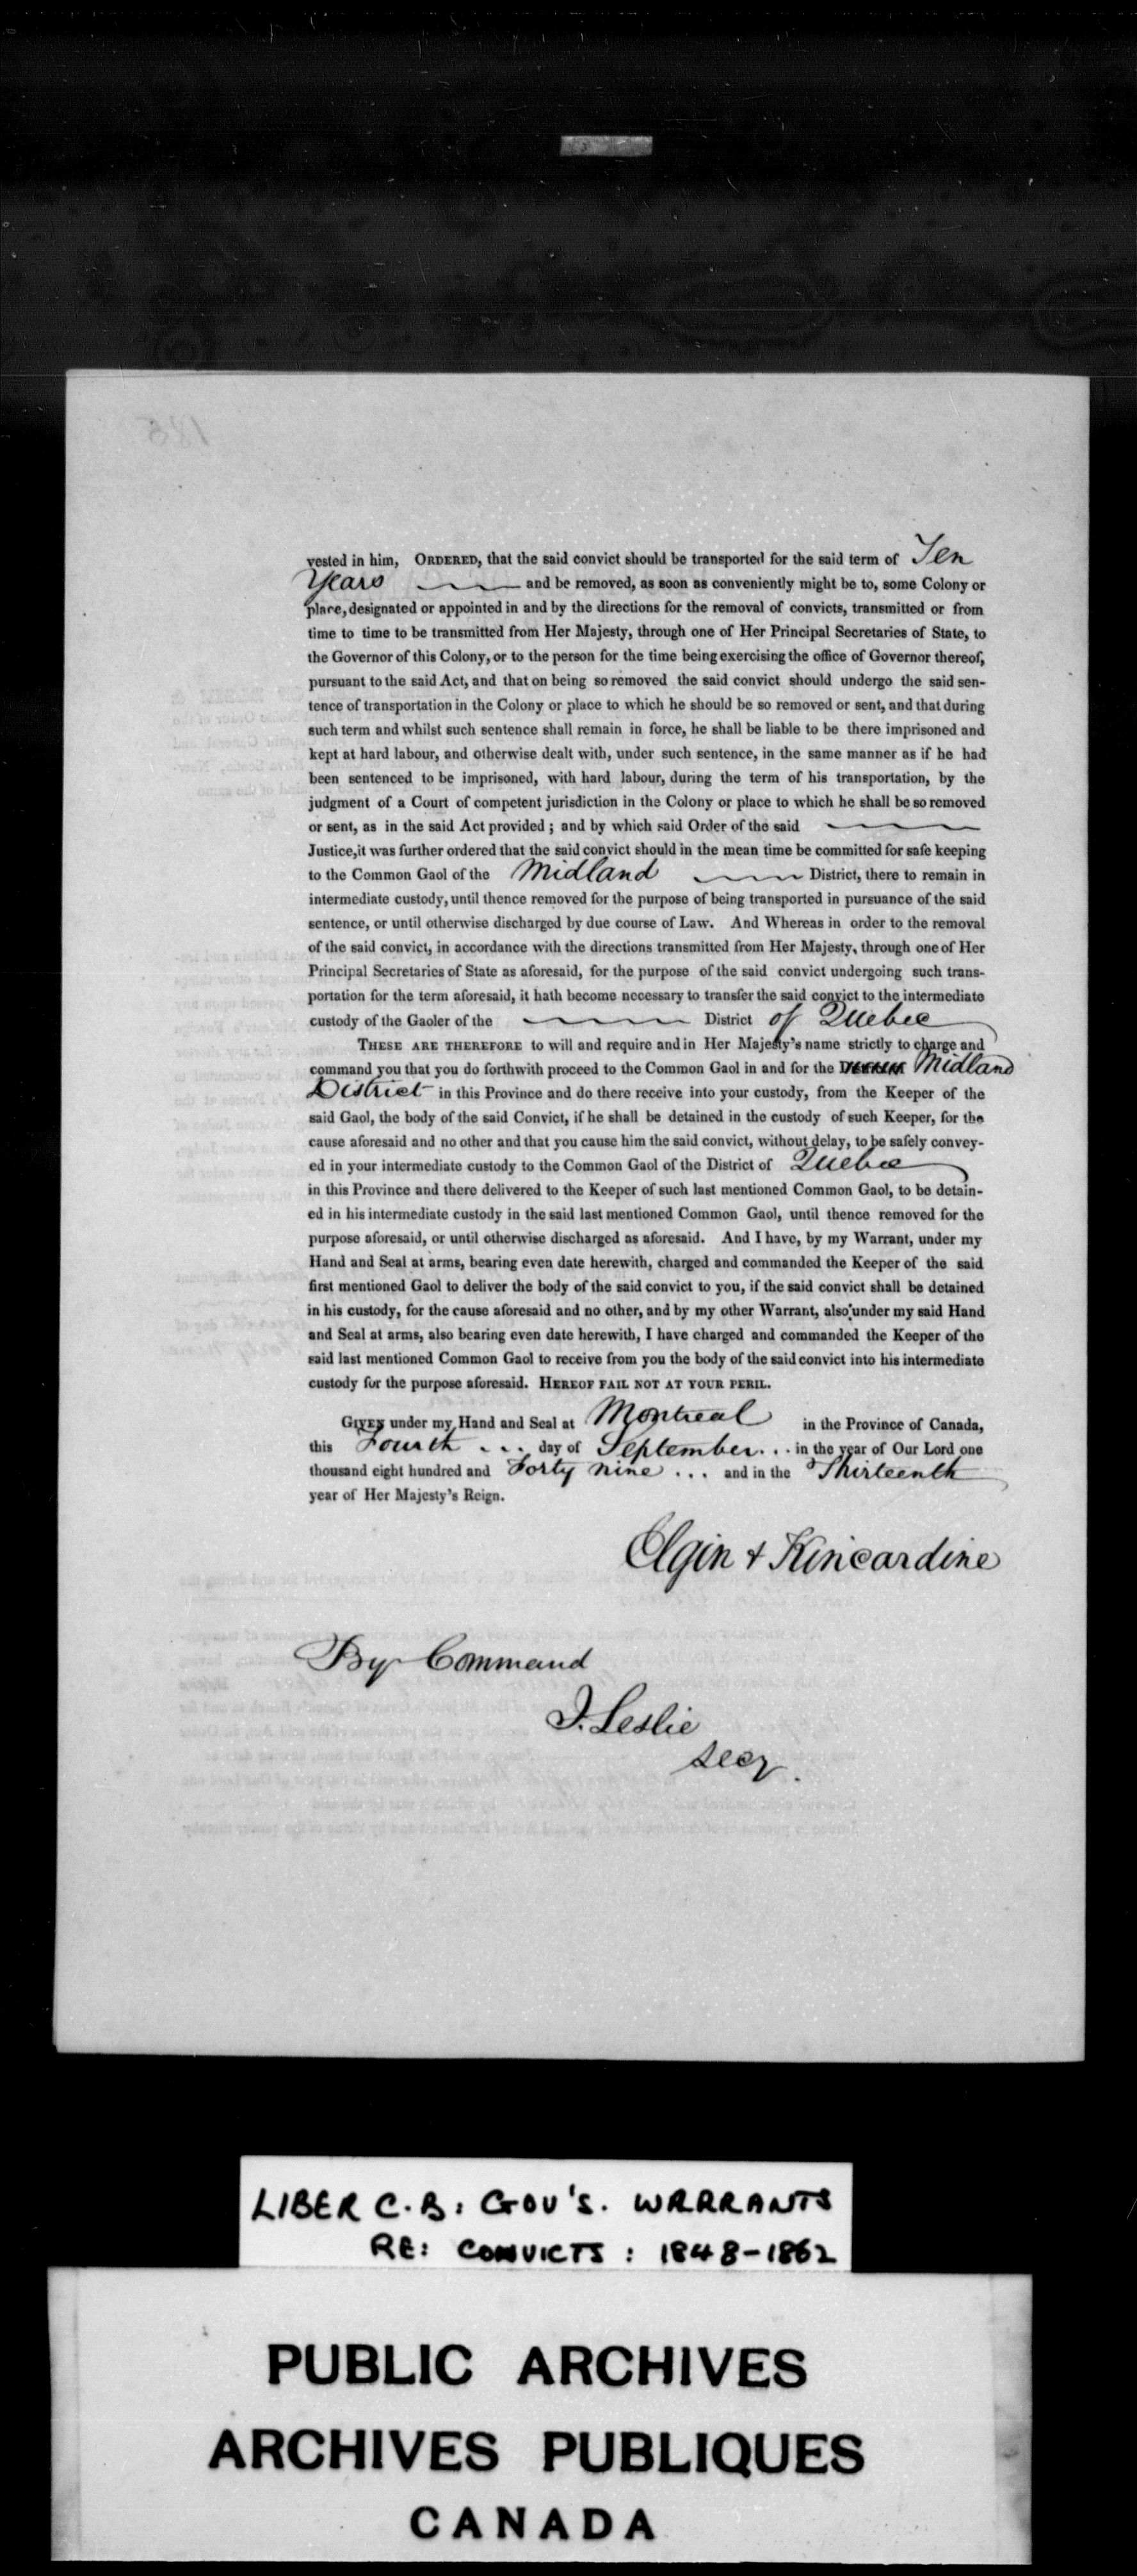 vested in him, ORDERED, that the said convict should be transported for the said term of Ten
Years and be removed, as soon as conveniently might be to, some Colony or
place, designated or appointed in and by the directions for the removal of convicts, transmitted or from
time to time to be transmitted from Her Majesty, through one of Her Principal Secretaries of State, to
the Governor of this Colony, or to the person for the time being exercising the office of Governor thereof,
pursuant to the said Act, and that on being so removed the said convict should undergo the said sen-
tence of transportation in the Colony or place to which he should be so removed or sent, and that during
such term and whilst such sentence shall remain in force, he shall be liable to be there imprisoned and
kept at hard labour, and otherwise dealt with, under such sentence, in the same manner as if he had
been sentenced to be imprisoned, with hard labour, during the term of his transportation, by the
judgment of a Court of competent jurisdiction in the Colony or place to which he shall be so removed
or sent, as in the said Act provided ; and by which said Order of the said
Justice, it was further ordered that the said convict should in the mean time be committed for safe keeping
to the Common Gaol of the Midland District, there to remain in
intermediate custody, until thence removed for the purpose of being transported in pursuance of the said
sentence, or until otherwise discharged by due course of Law. And Whereas in order to the removal
of the said convict, in accordance with the directions transmitted from Her Majesty, through one of Her
Principal Secretaries of State as aforesaid, for the purpose of the said convict undergoing such trans-
portation for the term aforesaid, it hath become necessary to transfer the said convict to the intermediate
custody of the Gaoler of the District of Quebec
THESE ARE THEREFORE to will and require and in Her Majesty's name strictly to charge and
command you that you do forthwith proceed to the Common Gaol in and for the Midland
District in this Province and do there receive into your custody, from the Keeper of the
said Gaol, the body of the said Convict, if he shall be detained in the custody of such Keeper, for the
cause aforesaid and no other and that you cause him the said convict, without delay, to be safely convey-
ed in your intermediate custody to the Common Gaol of the District of Quebec
in this Province and there delivered to the Keeper of such last mentioned Common Gaol, to be detain-
ed in his intermediate custody in the said last mentioned Common Gaol, until thence removed for the
purpose aforesaid, or until otherwise discharged as aforesaid. And I have, by my Warrant, under my
Hand and Seal at arms, bearing even date herewith, charged and commanded the Keeper of the said
first mentioned Gaol to deliver the body of the said convict to you, if the said convict shall be detained
in his custody, for the cause aforesaid and no other, and by my other Warrant, also under my said Hand
and Seal at arms, also bearing even date herewith, I have charged and commanded the Keeper of the
said last mentioned Common Gaol to receive from you the body of the said convict into his intermediate
custody for the purpose aforesaid. HEREOF FAIL NOT AT YOUR PERIL.
GIVEN under my Hand and Seal at Montreal in the Province of Canada,
this Fourth . . . day of September . . . in the year of Our Lord one
thousand eight hundred and Forty nine . . . and in the Thirteenth
year of Her Majesty's Reign.
Elgin & Kincardine
By Command
J. Leslie
Secy.
LIBER C.B: GOV'S. WARRANTS
RE: CONVICTS: 1848-1862
PUBLIC ARCHIVES
ARCHIVES PUBLIQUES
CANADA